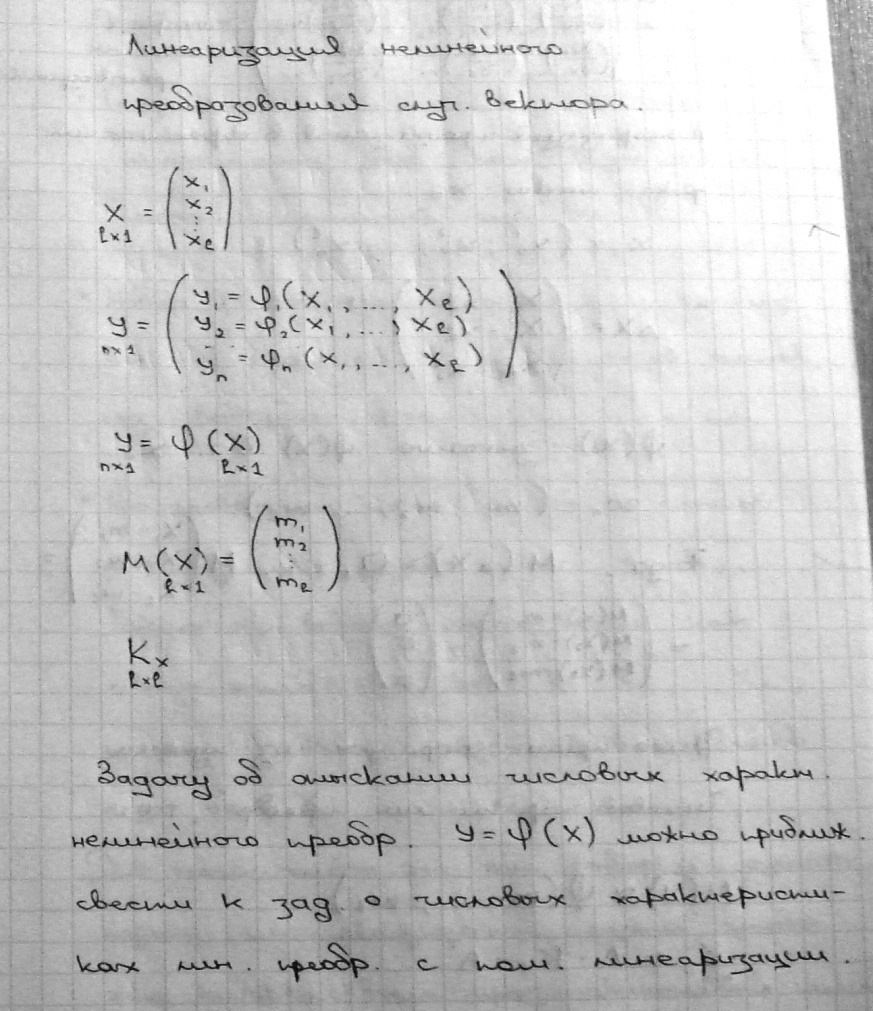 Линеаризация нелинейного
преобразования случ. вектора.
X = (x₁
x₂
⋮
xₑ)
ℓ×1
Y = (y₁ = φ₁(x₁, ..., xₑ)
y₂ = φ₂(x₁, ..., xₑ)
yₙ = φₙ(x₁, ..., xₑ))
n×1
Y = φ(X)
n×1 ℓ×1
M(X) = (m₁
m₂
⋮
mₑ)
ℓ×1
Kₓ
ℓ×ℓ
Задачу об отыскании числовых характ.
нелинейного преобр. Y = φ(X) можно приближ.
свести к зад. о числовых характеристи-
ках лин. преобр. с пом. линеаризации.